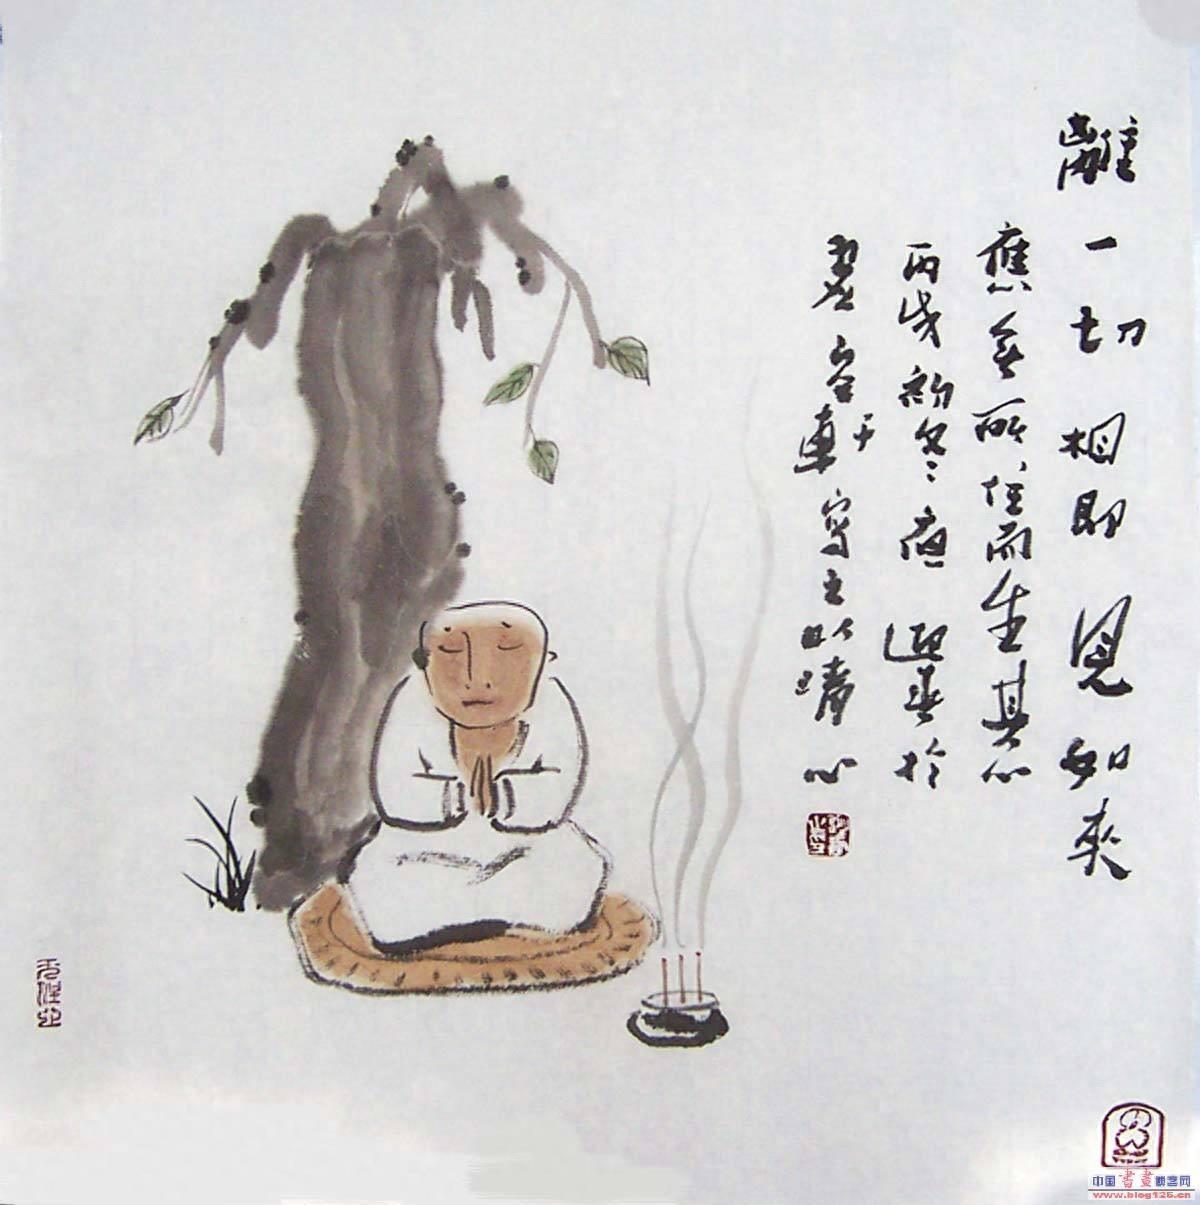 離一切相即見如來
應無所住而生其心
丙戌初冬夜迎春於
寫之以清心
中国書畫博客网
www.blog126.cn